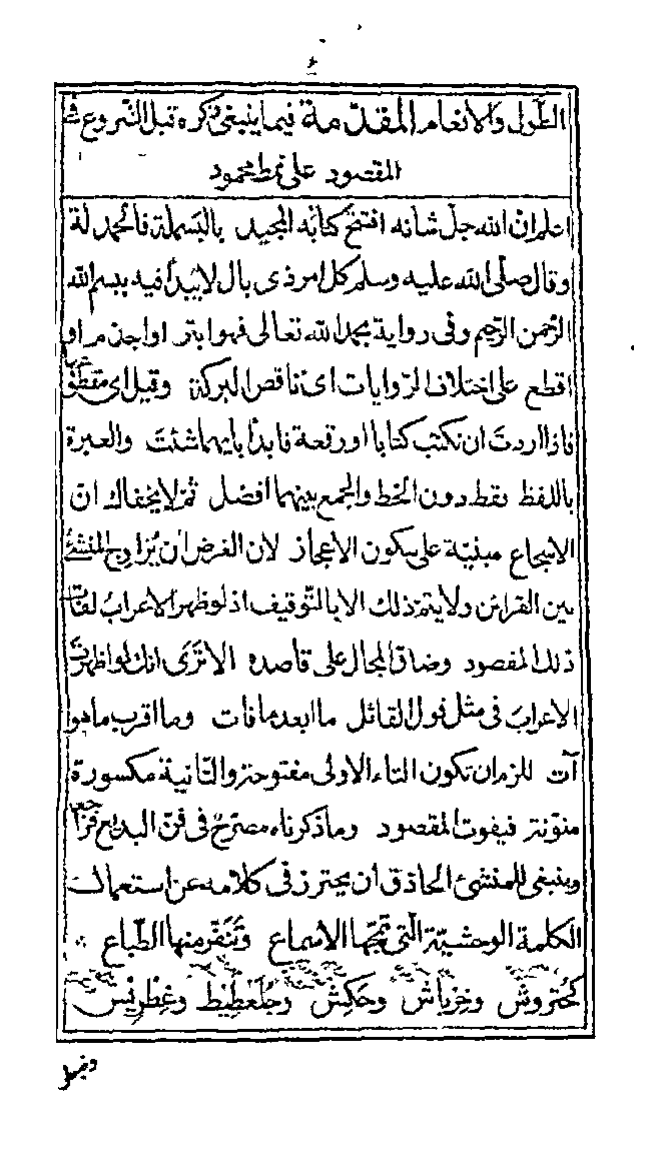 ٤
الطَّول والانعام المقدّمة فيما ينبغى ذكره قبل الشروع فى
المقصود على نمط محمود
اعلم انّ الله جل شانه افتتح كتابه المجيد بالبَسملة فالحمد لة
وقال صلّى الله عليه وسلم كل امر ذى بال لا يُبدأ فيه ببسم الله
الرّحمن الرّحيم وفى رواية بحمد الله تعالى فهو ابتر او اجذم او
اقطع على اختلاف الرّوايات اى ناقص البركة وقيل اى مقطوعها
فاذا اردتَ ان تكتبَ كتابا او رقعة فابدأ بايّهما شئتَ والعبرة
باللفظ فقط دون الخط والجمع بينهما افضل ثمّ لا يخفاك انّ
الاسجاع مبنيّة على سكون الاعجاز لان الغرض أن يُزاوج المنشئ
بين القرائن ولا يتم ذلك الا بالتّوقيف اذ لو ظهر الاعرابُ لفات
ذلك المقصود وضاق المجال على قاصده الا ترَى انك لو اظهرتَ
الاعرابَ فى مثل قول القائل ما ابعد ما فات وما اقرب ما هو
آت للزم ان تكون التاء الاولى مفتوحة والثانية مكسورة
منوّنة فيفوت المقصود وما ذكرناه مصرّحٌ فى فنّ البديع
وينبغى للمنشئ الحاذق ان يحترز فى كلامه عن استعمال
الكلمة الوحشيّة الّتى تمجّها الاسماع وتَنفر منها الطّباع
كحُتروش وخِرباش وحَكِش وجُلَعْطِيط وغِطْرِيْس